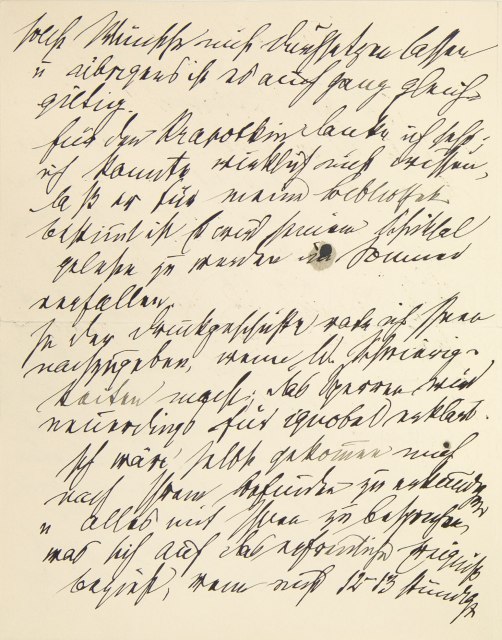 solche Wünsche nicht durchsetzen lassen
u übrigens ist es auch ganz gleich-
giltig.
für den Krapotkin danke ich sehr,
ich konnte wirklich nicht wissen,
daß er für meine Bibliothek
bestimmt ist u wird seinem Schicksal
gelesen zu werden im Sommer
verfallen.
In der Druckgeschichte rate ich Ihnen
nachzugeben, wenn W. Schwierig-
keiten macht; das Sperren wird
neuerdings für ignobel erklärt.
Ich wäre selbst gekommen mich
nach Ihrem Befinden zu erkundigen
u alles mit Ihnen zu besprechen,
was sich auf das erfreuliche Ereigniß
bezieht, wenn nicht 12-13 stündige